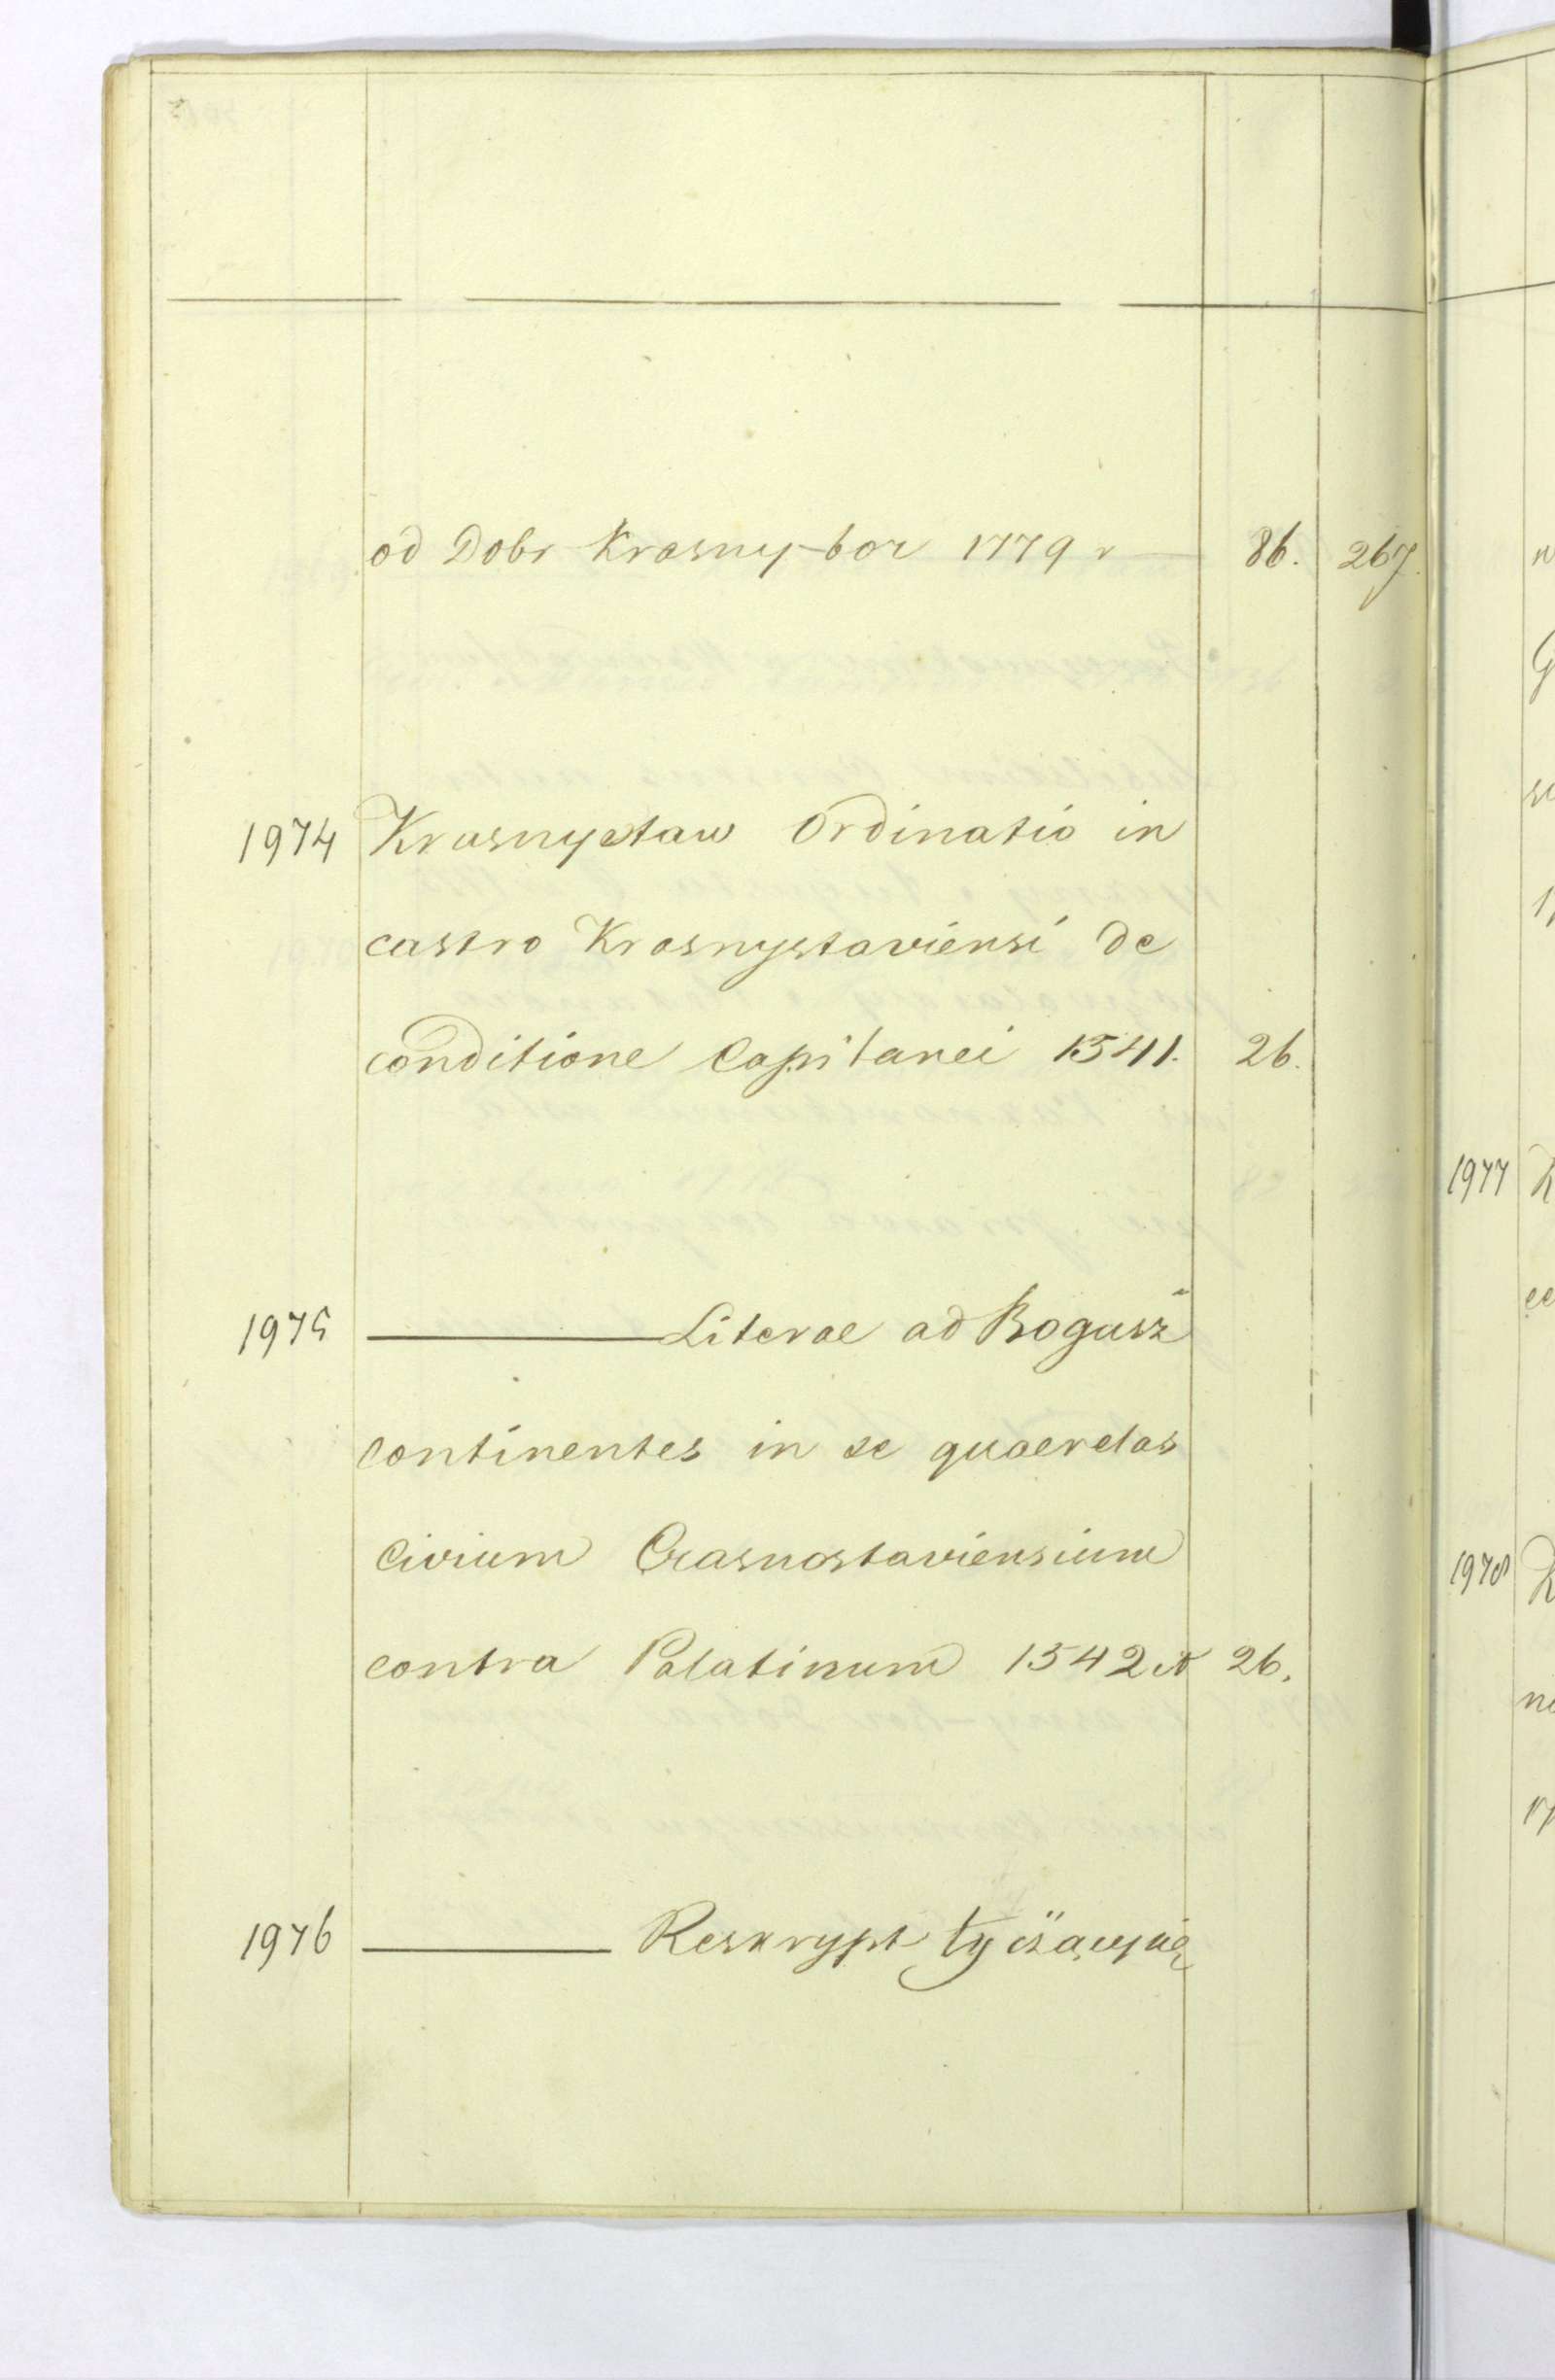 od Dobr Krasny-bor 1779 r 86. 267.
1974 Krasnystaw Ordinatio in
castro Krasnystaviensi de
conditione Capitanei 1541. 26.
1975 Literae ad Bogusz
continentes in se quaerelas
Civium Crasnostaviensium
contra Palatinum 1542 26.
1976 Reskrypt tyczący się
1977
1978